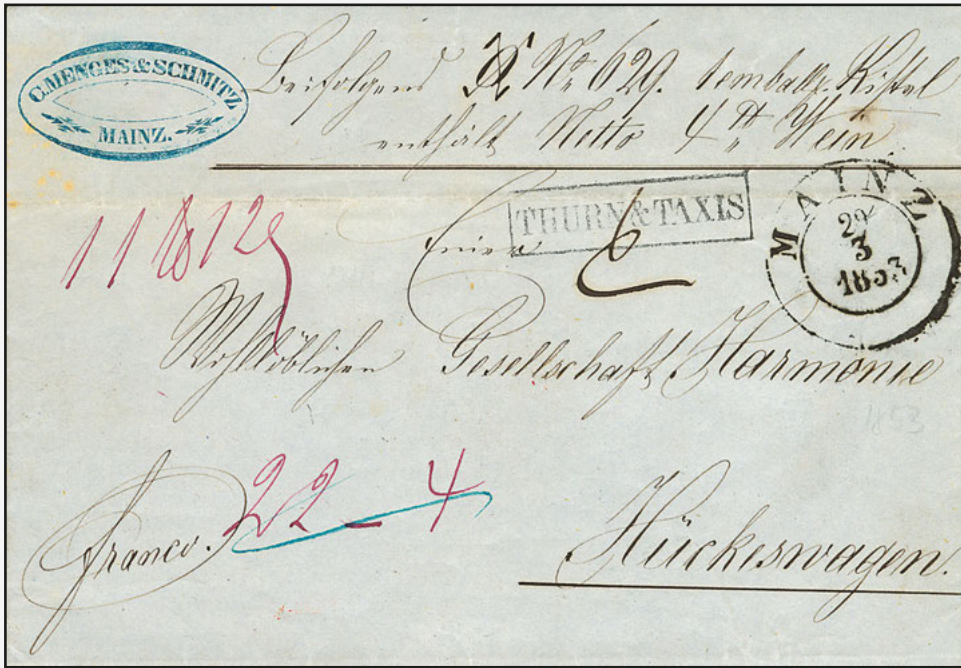 C. MENGES & SCHMITZ
MAINZ.
Beifolgend № 629. 1 emball. Kistel
enthält Netto 4 ℔ Wein
THURN & TAXIS
MAINZ
29
3
1853
11 ℔ 12
Einer 6
Wohllöblichen Gesellschaft Harmonie
1853
franco. 22 – 4
Hückeswagen.